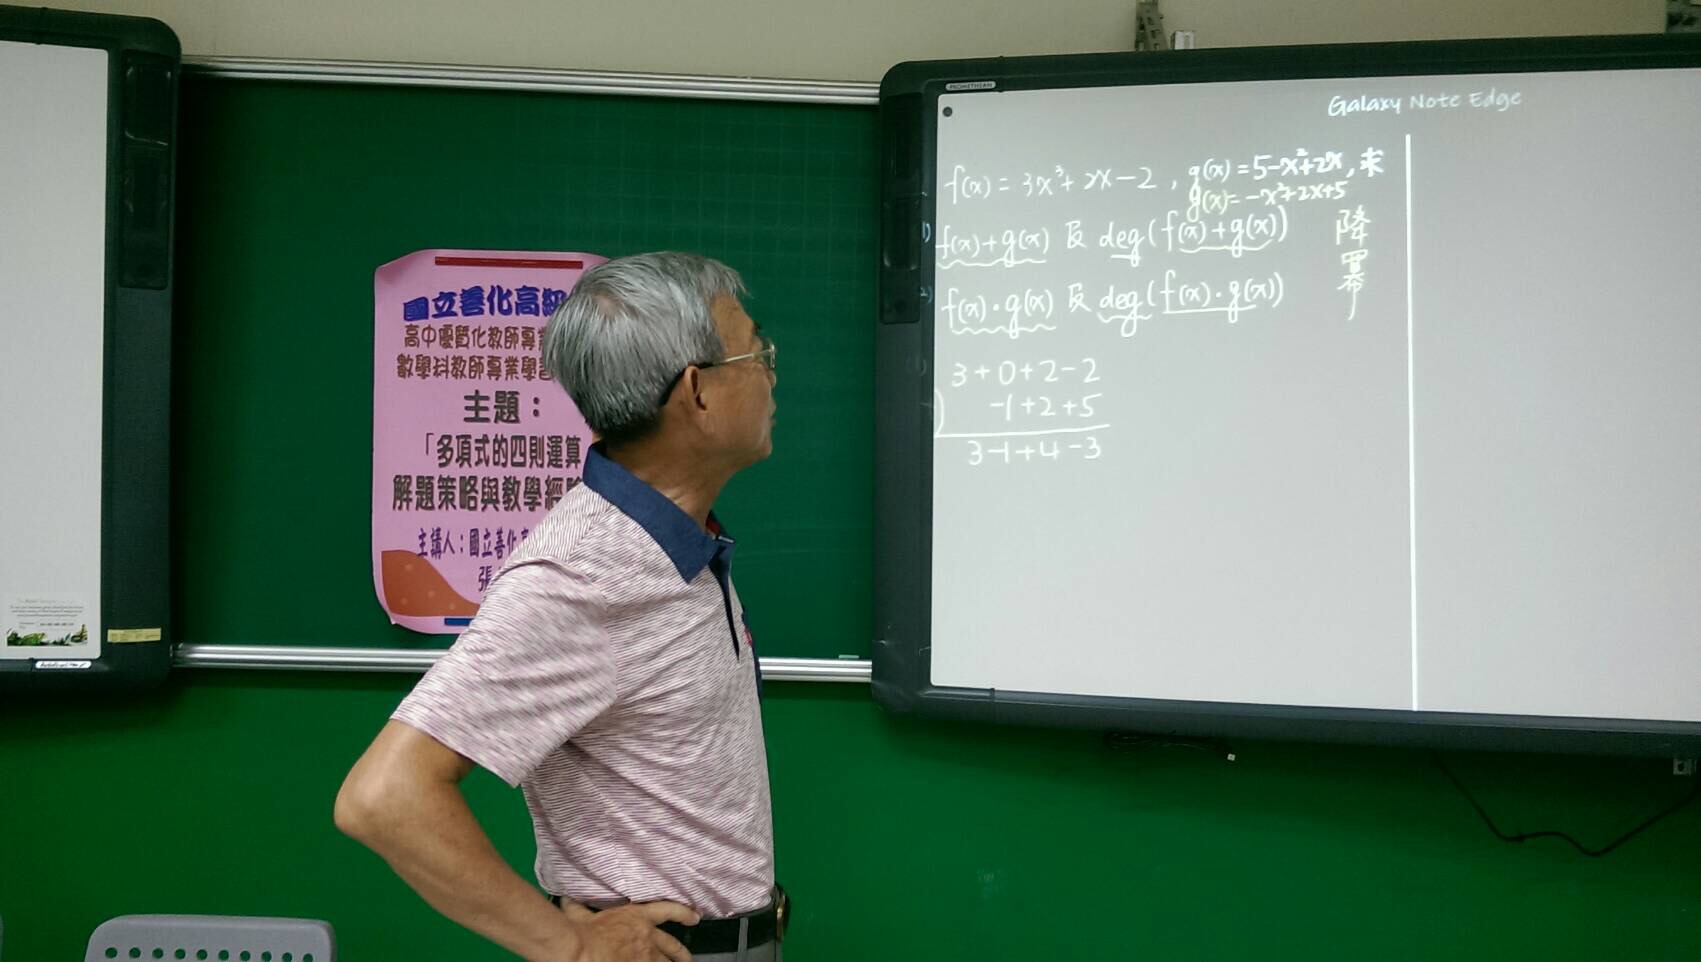 國立善化高級
高中優質化教師專業
數學科教師專業學習
主題：
「多項式的四則運算
解題策略與教學經
主講人：國立善化高
張
PROMETHEAN
Galaxy Note Edge
f(x) = 3x³+2x-2 , g(x) = 5-x²+2x, 求
g(x)= -x²+2x+5
1) f(x)+g(x) 及 deg(f(x)+g(x))
2) f(x)·g(x) 及 deg(f(x)·g(x))
降冪
(1) 3+0+2-2
) -1+2+5
3-1+4-3